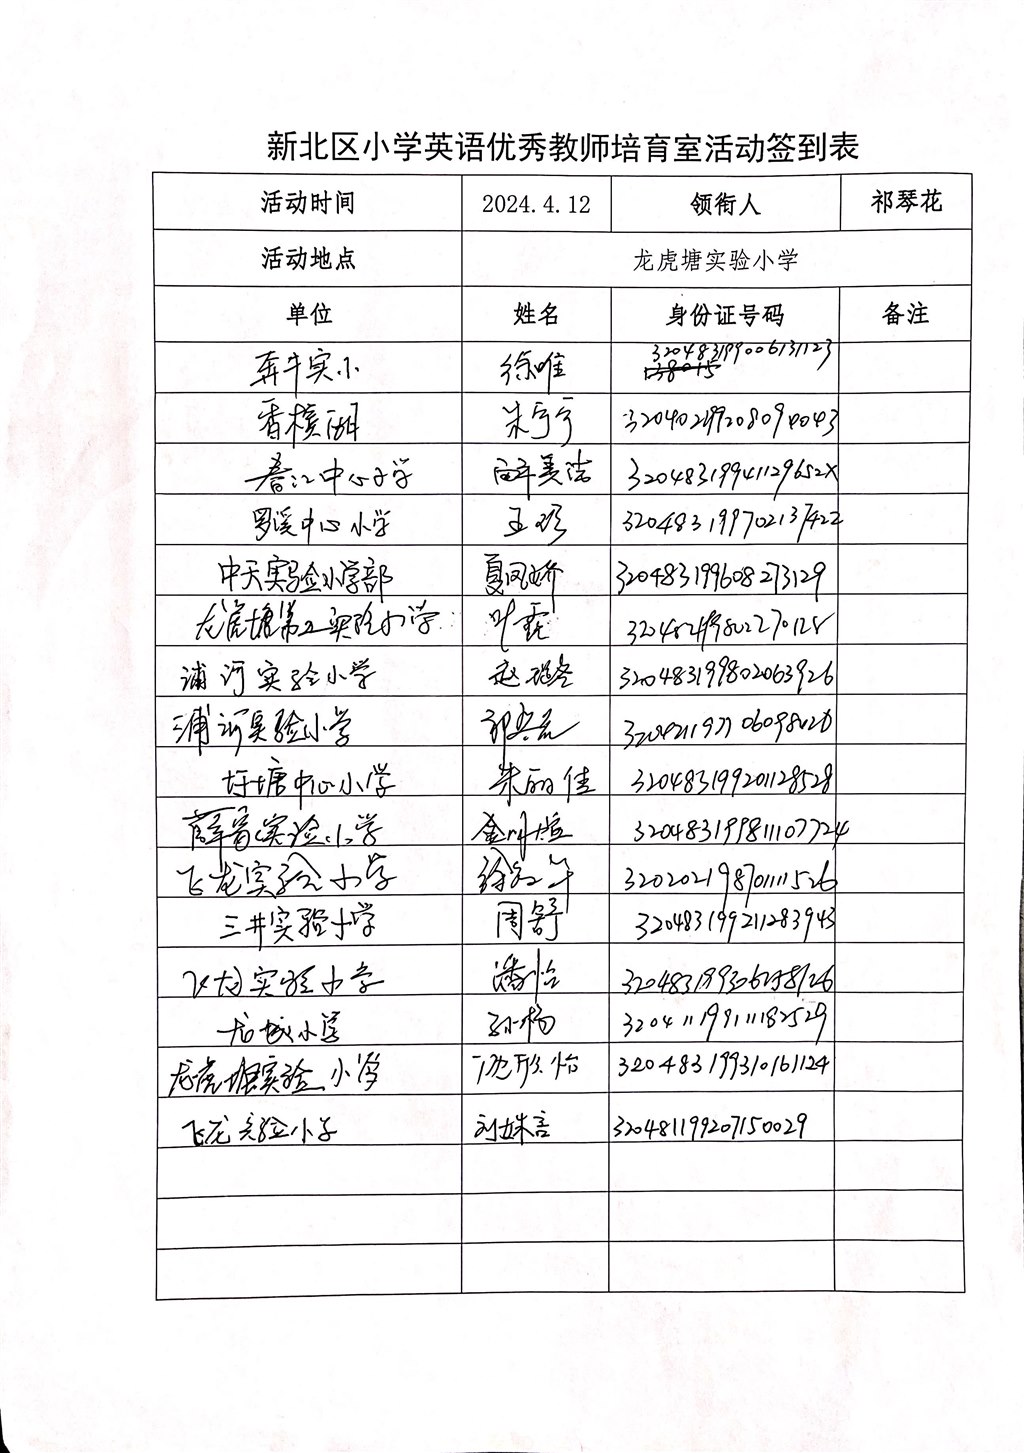 新北区小学英语优秀教师培育室活动签到表
活动时间 2024.4.12 领衔人 祁琴花
活动地点 龙虎塘实验小学
单位 姓名 身份证号码 备注
奔牛实小 徐唯 320483199006131123
香槟湖 朱宁宁 320402199208094043
春江中心小学 薛美洁 32048319941129652X
罗溪中心小学 王珍 320483199702137422
中天实验小学部 夏凤娇 320483199608273129
龙虎塘第二实验小学 叶霓
浦河实验小学 赵 320483199802063926
浦河实验小学
圩塘中心小学 朱丽佳 320483199201128528
薛家实验小学 金 320483199811107724
飞龙实验小学 徐 320202198701111526
三井实验小学 周舒 320483199211283943
飞龙实验小学 潘怡
龙城小学 孙杨 320411199111182529
龙虎塘实验小学 沈欣怡 320483199310161124
飞龙实验小学 刘姝言 320481199207150029